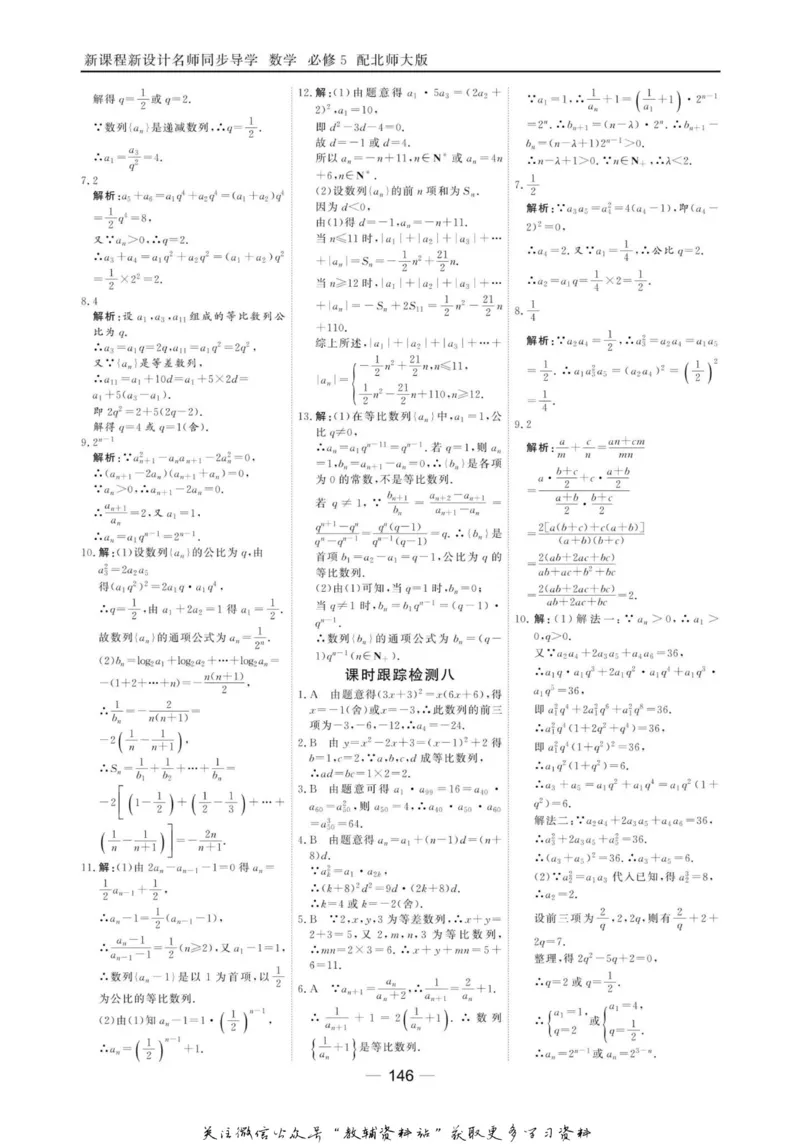 新课程新设计名师同步导学 数学 必修5 配北师大版
解得q=1/2或q=2.
∵数列{aₙ}是递减数列,∴q=1/2.
∴a₁=a₃/q²=4.
7.2
解析:a₅+a₆=a₁q⁴+a₂q⁴=(a₁+a₂)q⁴
=1/2q⁴=8,
又∵aₙ>0,∴q=2.
∴a₃+a₄=a₁q²+a₂q²=(a₁+a₂)q²
=1/2×2²=2.
8.4
解析:设a₁,a₃,a₁₁组成的等比数列公
比为q.
∴a₃=a₁q=2q,a₁₁=a₁q²=2q²,
又∵{aₙ}是等差数列,
∴a₁₁=a₁+10d=a₁+5×2d=
a₁+5(a₃-a₁).
即2q²=2+5(2q-2).
解得q=4或q=1(舍).
9.2ⁿ⁻¹
解析:∵a²ₙ₊₁-aₙaₙ₊₁-2a²ₙ=0,
∴(aₙ₊₁-2aₙ)(aₙ₊₁+aₙ)=0,
∵aₙ>0,∴aₙ₊₁-2aₙ=0.
∴aₙ₊₁/aₙ=2,又a₁=1,
∴aₙ=a₁qⁿ⁻¹=2ⁿ⁻¹.
10.解:(1)设数列{aₙ}的公比为q,由
a₃²=2a₂a₅
得(a₁q²)²=2a₁q·a₁q⁴,
∴q=1/2,由a₁+2a₂=1得a₁=1/2.
故数列{aₙ}的通项公式为aₙ=1/2ⁿ.
(2)bₙ=log₂a₁+log₂a₂+…+log₂aₙ=
-(1+2+…+n)=-n(n+1)/2,
∴1/bₙ=-2/n(n+1)=
-2(1/n-1/(n+1)),
∴Sₙ=1/b₁+1/b₂+…+1/bₙ=
-2[(1-1/2)+(1/2-1/3)+…+
(1/n-1/(n+1))]=-2n/(n+1).
11.解:(1)由2aₙ-aₙ₋₁-1=0得aₙ=
1/2aₙ₋₁+1/2,
∴aₙ-1=1/2(aₙ₋₁-1),
∴(aₙ-1)/(aₙ₋₁-1)=1/2(n≥2),又a₁-1=1,
∴数列{aₙ-1}是以1为首项,以1/2
为公比的等比数列.
(2)由(1)知aₙ-1=1·(1/2)ⁿ⁻¹,
∴aₙ=(1/2)ⁿ⁻¹+1.
12.解:(1)由题意得a₁·5a₃=(2a₂+
2)²,a₁=10,
即d²-3d-4=0.
故d=-1或d=4.
所以aₙ=-n+11,n∈N*或aₙ=4n
+6,n∈N*.
(2)设数列{aₙ}的前n项和为Sₙ.
因为d<0,
由(1)得d=-1,aₙ=-n+11.
当n≤11时,|a₁|+|a₂|+|a₃|+…
+|aₙ|=Sₙ=-1/2n²+21/2n.
当n≥12时,|a₁|+|a₂|+|a₃|+…
+|aₙ|=-Sₙ+2S₁₁=1/2n²-21/2n
+110.
综上所述,|a₁|+|a₂|+|a₃|+…+
|aₙ|={-1/2n²+21/2n,n≤11,
1/2n²-21/2n+110,n≥12.
13.解:(1)在等比数列{aₙ}中,a₁=1,公
比q≠0,
∴aₙ=a₁qⁿ⁻¹¹=qⁿ⁻¹.若q=1,则aₙ
=1,bₙ=aₙ₊₁-aₙ=0,∴{bₙ}是各项
为0的常数,不是等比数列.
若q≠1,∵bₙ₊₁/bₙ=(aₙ₊₂-aₙ₊₁)/(aₙ₊₁-aₙ)=
(qⁿ⁺¹-qⁿ)/(qⁿ-qⁿ⁻¹)=qⁿ(q-1)/qⁿ⁻¹(q-1)=q.∴{bₙ}是
首项b₁=a₂-a₁=q-1,公比为q的
等比数列.
(2)由(1)可知,当q=1时,bₙ=0;
当q≠1时,bₙ=b₁qⁿ⁻¹=(q-1)·
qⁿ⁻¹.
∴数列{bₙ}的通项公式为bₙ=(q-
1)qⁿ⁻¹(n∈N₊).
课时跟踪检测八
1.A 由题意得(3x+3)²=x(6x+6),得
x=-1(舍)或x=-3,∴此数列的前三
项为-3,-6,-12,∴a₄=-24.
2.B 由y=x²-2x+3=(x-1)²+2得
b=1,c=2,∵a,b,c,d成等比数列,
∴ad=bc=1×2=2.
3.B 由题意可得a₁·a₉₉=16=a₄₀·
a₆₀=a²₅₀,则a₅₀=4,∴a₄₀·a₅₀·a₆₀
=a³₅₀=64.
4.B 由题意得aₙ=a₁+(n-1)d=(n+
8)d.
∵a²ₖ=a₁·a₂ₖ,
∴(k+8)²d²=9d·(2k+8)d.
∴k=4或k=-2(舍).
5.B ∵2,x,y,3为等差数列,∴x+y=
2+3=5,又2,m,n,3为等比数列,
∴mn=2×3=6.∴x+y+mn=5+
6=11.
6.A ∵aₙ₊₁=aₙ/(aₙ+2),∴1/aₙ₊₁=2/aₙ+1.
∴1/aₙ₊₁+1=2(1/aₙ+1).∴数列
{1/aₙ+1}是等比数列.
∵a₁=1,∴1/aₙ+1=(1/a₁+1)·2ⁿ⁻¹
=2ⁿ.∴bₙ₊₁=(n-λ)·2ⁿ.∴bₙ₊₁-
bₙ=(n-λ+1)2ⁿ⁻¹>0.
∴n-λ+1>0.∵n∈N₊,∴λ<2.
7.1/2
解析:∵a₃a₅=a₄²=4(a₄-1),即(a₄-
2)²=0,
∴a₄=2.又∵a₁=1/4,∴公比q=2.
∴a₂=a₁q=1/4×2=1/2.
8.1/4
解析:∵a₂a₄=1/2,∴a₃²=a₂a₄=a₁a₅
=1/2.∴a₁a₃²a₅=(a₂a₄)²=(1/2)²
=1/4.
9.2
解析:a/m+c/n=(an+cm)/mn
=(a·(b+c)/2+c·(a+b)/2)/((a+b)/2·(b+c)/2)
=2[a(b+c)+c(a+b)]/(a+b)(b+c)
=2(ab+2ac+bc)/(ab+ac+b²+bc)
=2(ab+2ac+bc)/(ab+2ac+bc)=2.
10.解:(1)解法一:∵aₙ>0,∴a₁>
0,q>0.
又∵a₂a₄+2a₃a₅+a₄a₆=36,
∴a₁q·a₁q³+2a₁q²·a₁q⁴+a₁q³·
a₁q⁵=36,
即a₁²q⁴+2a₁²q⁶+a₁²q⁸=36.
∴a₁²q⁴(1+2q²+q⁴)=36,
即a₁²q⁴(1+q²)²=36,
∴a₁q²(1+q²)=6.
∴a₃+a₅=a₁q²+a₁q⁴=a₁q²(1+
q²)=6.
解法二:∵a₂a₄+2a₃a₅+a₄a₆=36,
∴a₃²+2a₃a₅+a₅²=36.
∴(a₃+a₅)²=36.∴a₃+a₅=6.
(2)∵a₂²=a₁a₃代入已知,得a₂³=8,
∴a₂=2.
设前三项为2/q,2,2q,则有2/q+2+
2q=7.
整理,得2q²-5q+2=0,
∴q=2或q=1/2.
∴{a₁=1,q=2 或{a₁=4,q=1/2.
∴aₙ=2ⁿ⁻¹或aₙ=2³⁻ⁿ.
— 146 —
关注微信公众号“教辅资料站”获取更多学习资料